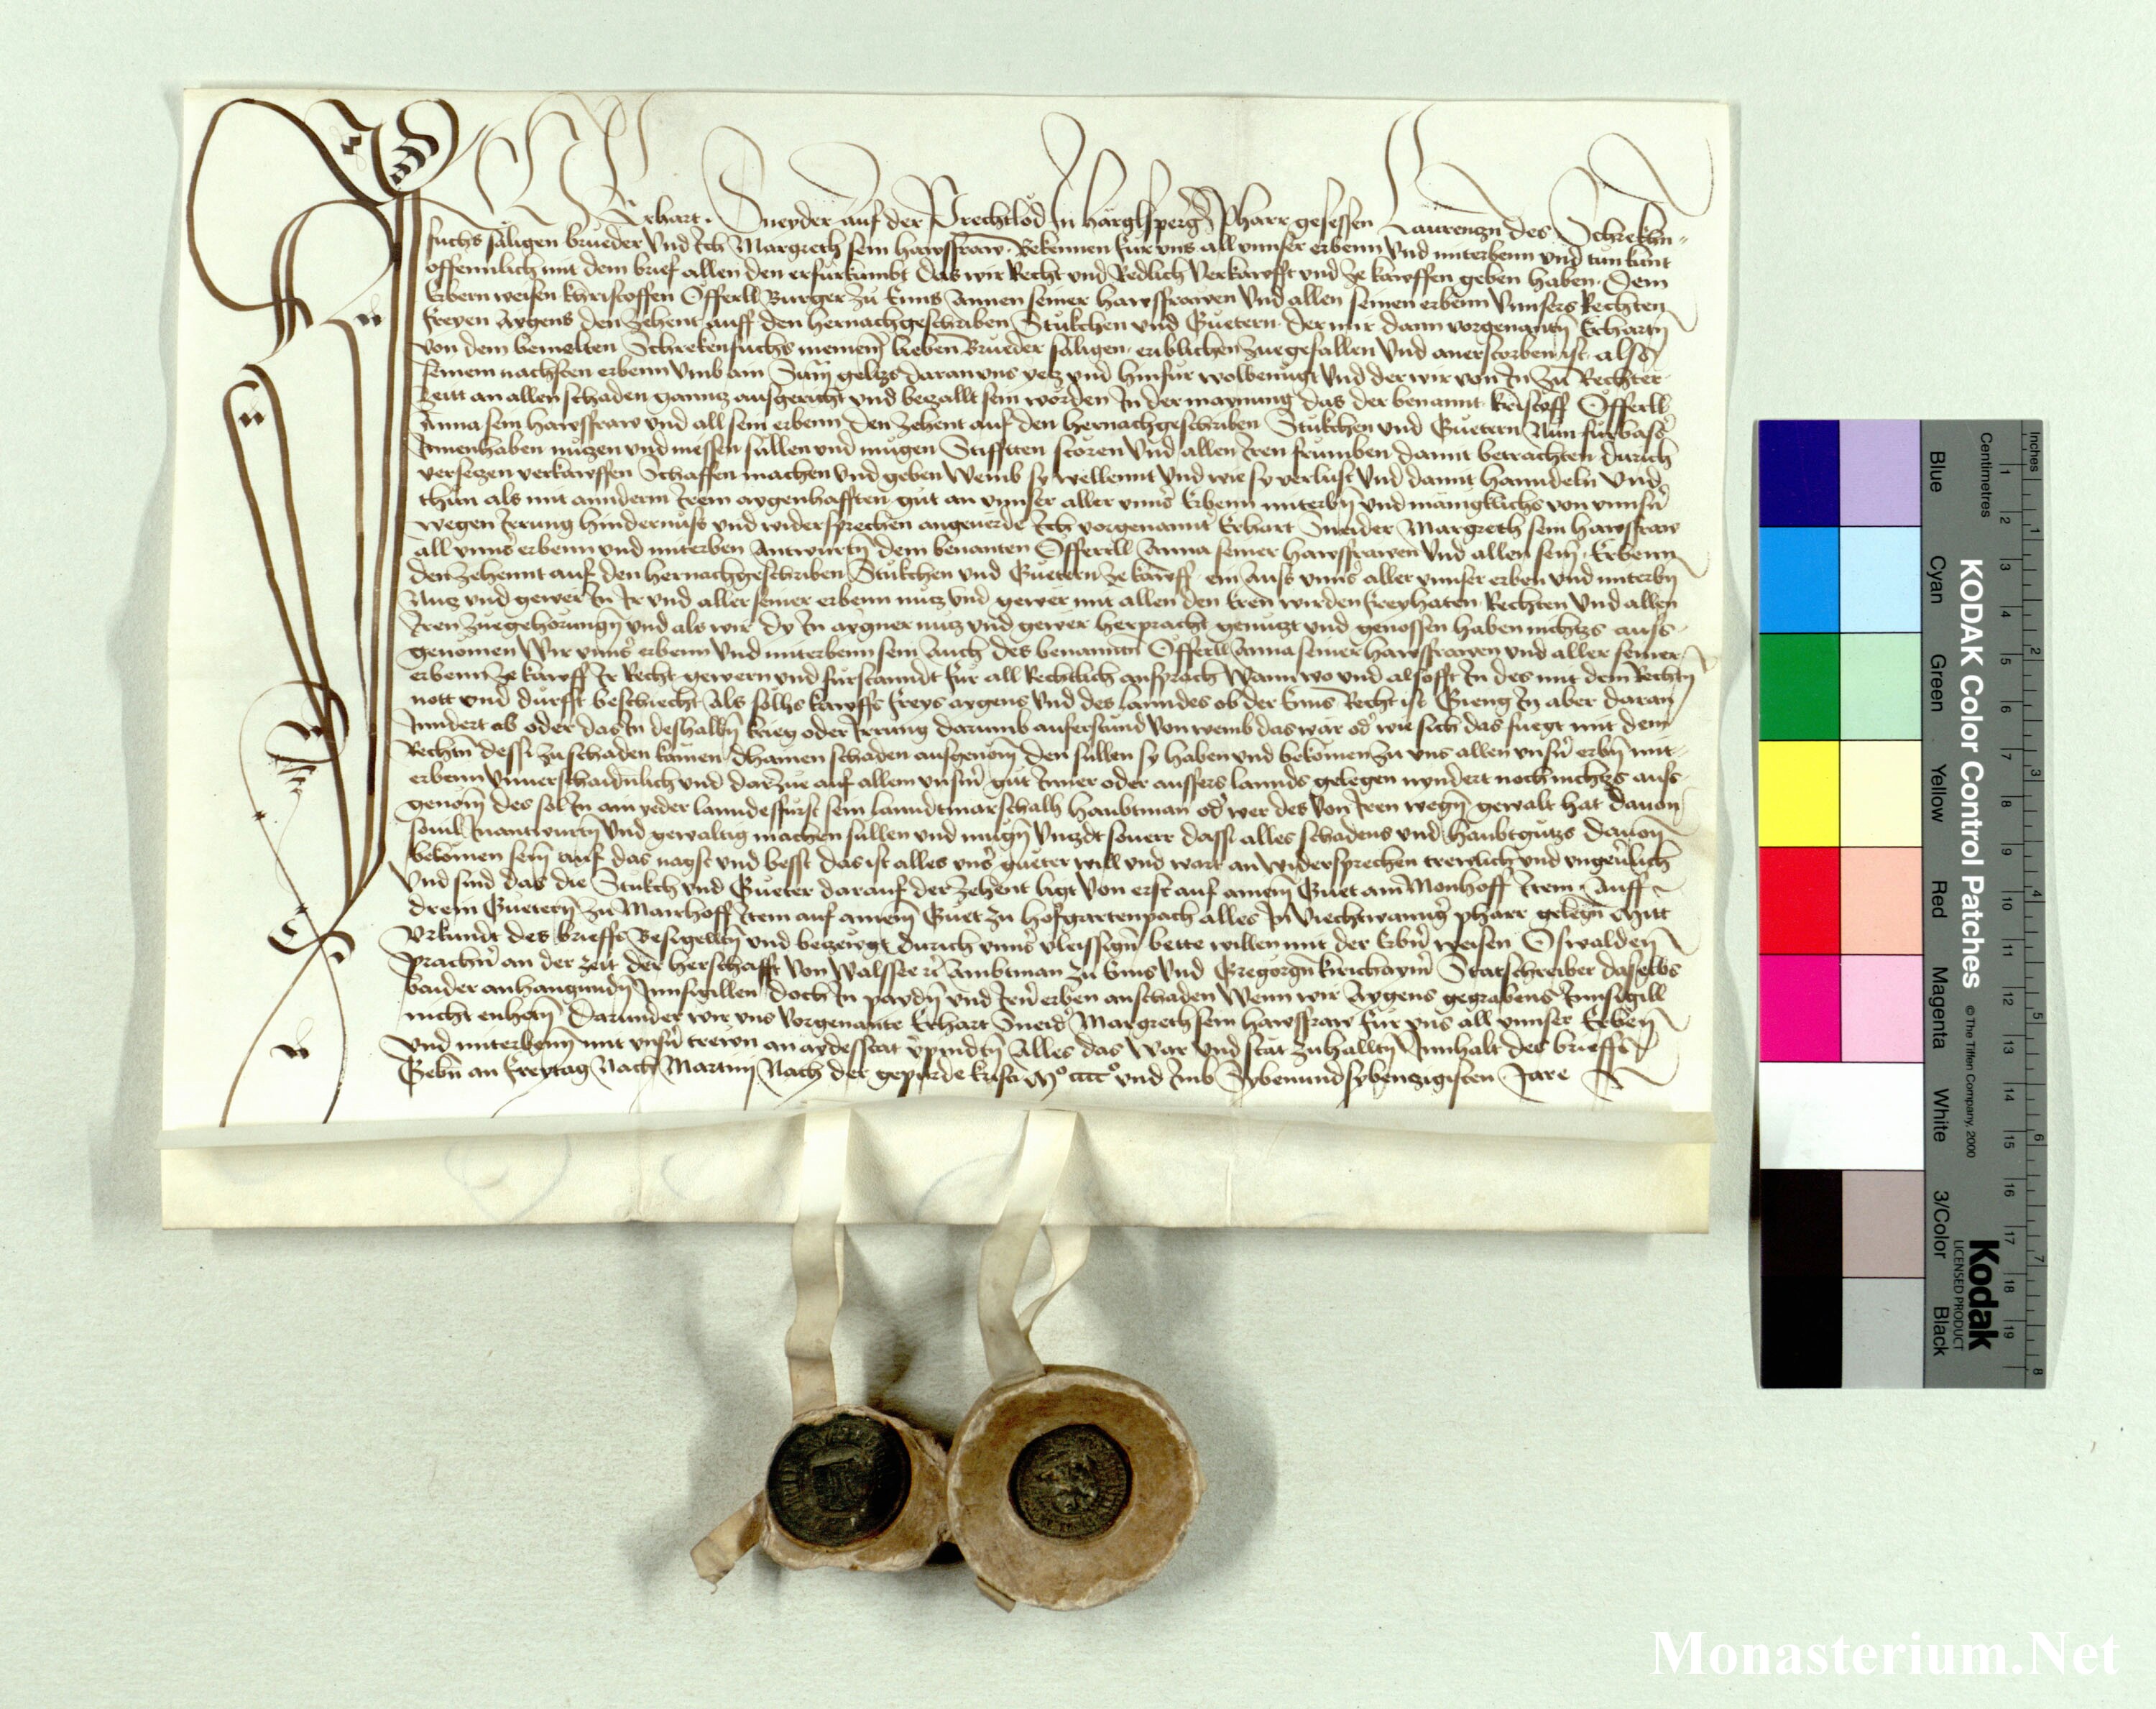 Ich Erhart Sneyder auf der Prechtlöd In härglsperger Pharr gesessen Laurenzn des Schrekhn-
fuchs säligen brueder Vnd Ich Margreth sein hawssfraw Bekennen für vns all vnnser erbenn Vnd miterbenn vnd tun kunt
offennlich mit dem brief allen den er fürkumbt Das wir Recht vnd Redlich Verkawfft vnd ze kawffen geben haben Dem
Erbern weisen khristoffen Öfferll Burger zu Enns Annen seiner hawssfrawen Vnd allen seinen erbenn Vnnsers Rechten
freyen Aygens den Zehent auff den hernachgeschriben Stukchen vnd Guetern der mir dann vorgenantn Erhartn
von dem bemelten Schrekenfuchs meinem lieben Brueder säligen erblichen zuegefallen Vnd anerstorben ist als
seinem nachsten erbenn Vmb ain Sum geltzs daran vns yetz vnd hinfür wolbenügt Vnd der wir von In zu Rechter
Zeitt an allen schaden ganntz ausgericht vnd betzallt sein worden In der maynung das der benannt kristoff Öfferll
Anna sein hawssfraw vnd all sein erbenn Den Zehent auf den hernachgeschriben Stukchen vnd Guetern Nun fürbass
Innenhaben nutzen vnd niessen süllen vnd mügen Stifften stören Vnd allen Iren frumben damit betrachten durich
versetzen verkawffen Schaffen machen Vnd geben Wemb sy wellennt Vnd wie sy verlust Vnd damit hanndeln Vnd
thun als mit annderm Irem aygenhafften gut an vnnser aller vnns Erbenn miterbn Vnd mänigklichs von vnnsn
wegen Irrung hindernüss vnd widersprechen angeuerde Ich vorgenannt Erhart Sneider Margreth sein hawssfraw
all vnns erbenn vnd miterben Antwurtn dem benanten Öfferll Anna seiner hawssfrawen Vnd allen sein Erbenn
den Zehennt auf den hernachgeschriben Stukchen vnd Guetern ze kawff ein Auss vnns aller vnnser erben vnd miterbn
Nutz vnd gewer In Ir vnd aller seiner erbenn nutz vnd gewer mit allen den Eren wirden freyhaten Rechten Vnd allen
Iren zuegehorungn vnd als wir dy In aygner nutz vnd gewer herpracht genutzt vnd genossen haben nichtzs auss-
genomen Wir vnns erbenn Vnd miterbenn sein Auch des benanntn Öfferll Anna seiner hawssfrawen vnd aller seiner
erbenn ze kawff Ir Recht gewern vnd fürstanndt für all Rechtlich ansprach Wann wo vnd alsofft In des mit dem Rechtn
nott vnd durfft beschiecht Als sölhs kawffs freys aygens Vnd des lanndes ob der Enns Recht ist Gieng In aber daran
Inndert ab oder das In deshalbn krieg oder Irrung darumb auferstund Von wemb das wär od wie sich das fuegt mit dem
Rechtn dess zu schaden kämen dhainen schaden ausgenom Den sullen sy haben vnd bekömen zu vns allen vnsn erbn mit-
erbenn Vnuerschaidnlich vnd dartzue auf allem vnsm gut Inner oder aussers lannds gelegen nyndert noch nichtzs auss-
genom des sol In ain yeder lanndesfürst sein lanndtmarschalh haubtman od wer des Von Iren wegn gewalt hat dauon
souil Inantwurtn Vnd gewaltig machen sullen vnd mugn Vntzdt so uerr dass alles schadens vnd haubtgutzs dauon
bekömen sein auf das nagst vnd besst das ist alles vns gueter will vnd wort an widersprechen trewlich vnd vngeurlich
Vnd sind das die Stukch vnd Gueter darauf der Zehent ligt Von erst auf ainem Guet am Monhoff Item Auff
drein Guetern zu Mairhoff Item auf ainem Guet zu hofgartenpach alles In Viechtwanngr pharr gelegn Mitt
Vrkundt des brieffs Besigelltn vnd betzewgt durich vnns vleissign bette willen mit der Erbn weisen Oswalden
prachn an der zeit der herschafft Von Walssee rc Ambtman zu Enns Vnd Gregorgn kirichaym Statschreiber daselbs
baider anhangundn Innsigillen doch In paydn vnd Irn erben anschaden Wenn wir Aygens gegrabens Innsigill
nicht enhetn Darunder wir vns Vorgenante Erhart Sneid Margreth sein hawssfraw für vns all vnnser Erben
vnd miterbenn mit vnsn trewn an aydesstat vpindtn Alles das War vnd stät zuhalltn Innhalt des brieffs
Gebn an freytag Nach Martini Nach der gepurde kristi Mo cccco vnd Imb Sybenundsybenzigisten Jare
KODAK Color Control Patches © The Tiffen Company, 2000 Kodak LICENSED PRODUCT
Blue Cyan Green Yellow Red Magenta White 3/Color Black
Inches 1 2 3 4 5 6 7 8
Centimetres 1 2 3 4 5 6 7 8 9 10 11 12 13 14 15 16 17 18 19
Monasterium.Net